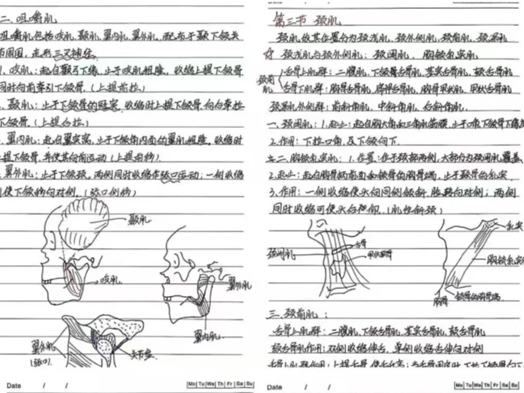 二.咀嚼肌
咀嚼肌包括咬肌、颞肌、翼内肌、翼外肌,配布于颞下颌关
节周围,
1.咬肌:起自颧弓下缘,止于咬肌粗隆,收缩上提下颌骨
同时向前牵引下颌骨.(上提前拉)
2.颞肌:止于下颌骨的冠突,收缩时上提下颌骨向后牵拉
下颌骨.(上提后拉)
3.翼内肌:起自翼突窝,止于下颌角内面的翼肌粗隆,收缩时
上提下颌骨,并使其向前运动
4.翼外肌:止于下颌颈,两侧同时收缩作张口运动,一侧收缩
使下颌骨向对侧.(张口侧移)
颞肌
咬肌
翼外肌
翼内肌
翼外肌
关节盘
Date / /
Mo Tu We Th Fr Sa Su
第三节 颈肌
颈肌依其位置分为颈浅肌、颈外侧肌、颈前肌、颈深肌
颈浅肌与颈外侧肌:颈阔肌、胸锁乳突肌
颈前肌
舌骨上肌群:二腹肌、下颌舌骨肌、茎突舌骨肌、颏舌骨肌
舌骨下肌群:胸骨舌骨肌、肩胛舌骨肌、胸骨甲状肌、甲状舌骨肌
颈深肌外侧群:前斜角肌、中斜角肌、后斜角肌.
一.颈阔肌:1.起止:起自胸大肌和三角肌筋膜,止于口角下颌骨下缘
2.作用:下拉口角,及下颌向下.
二.胸锁乳突肌:1.位置:在于颈部两侧,大部分为颈阔肌覆盖
2.起止:起自胸骨柄前面和锁骨的胸骨端,止于颞骨的乳突.
3.作用:一侧收缩使头向同侧倾斜,脸转向对侧;两侧
同时收缩可使头后仰.
颈阔肌
舌骨
胸锁乳突肌
胸骨
锁骨的胸骨端
三.颈前肌:
舌骨上肌群:二腹肌、下颌舌骨肌、茎突舌骨肌、颏舌骨肌
颏舌骨肌作用:双侧收缩伸舌,单侧收缩舌伸向对侧
Date / /
Mo Tu We Th Fr Sa Su